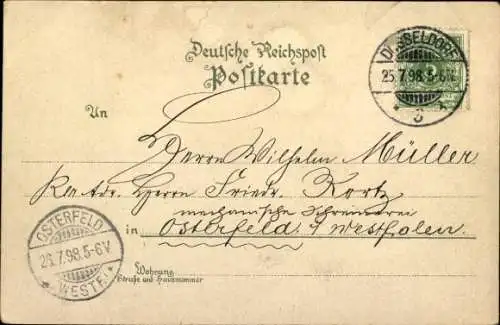 Deutsche Reichspost
Postkarte
DÜSSELDORF
25.7.98.5-6N.
* 3 *
An
Herrn Wilhelm Müller
Adr. Herrn Friedr. Kortz
mechanische Schreinerei
in Osterfeld i/Westfalen.
OSTERFELD
26.7.98.5-6V
* WESTF. *
Wohnung
Straße und Hausnummer